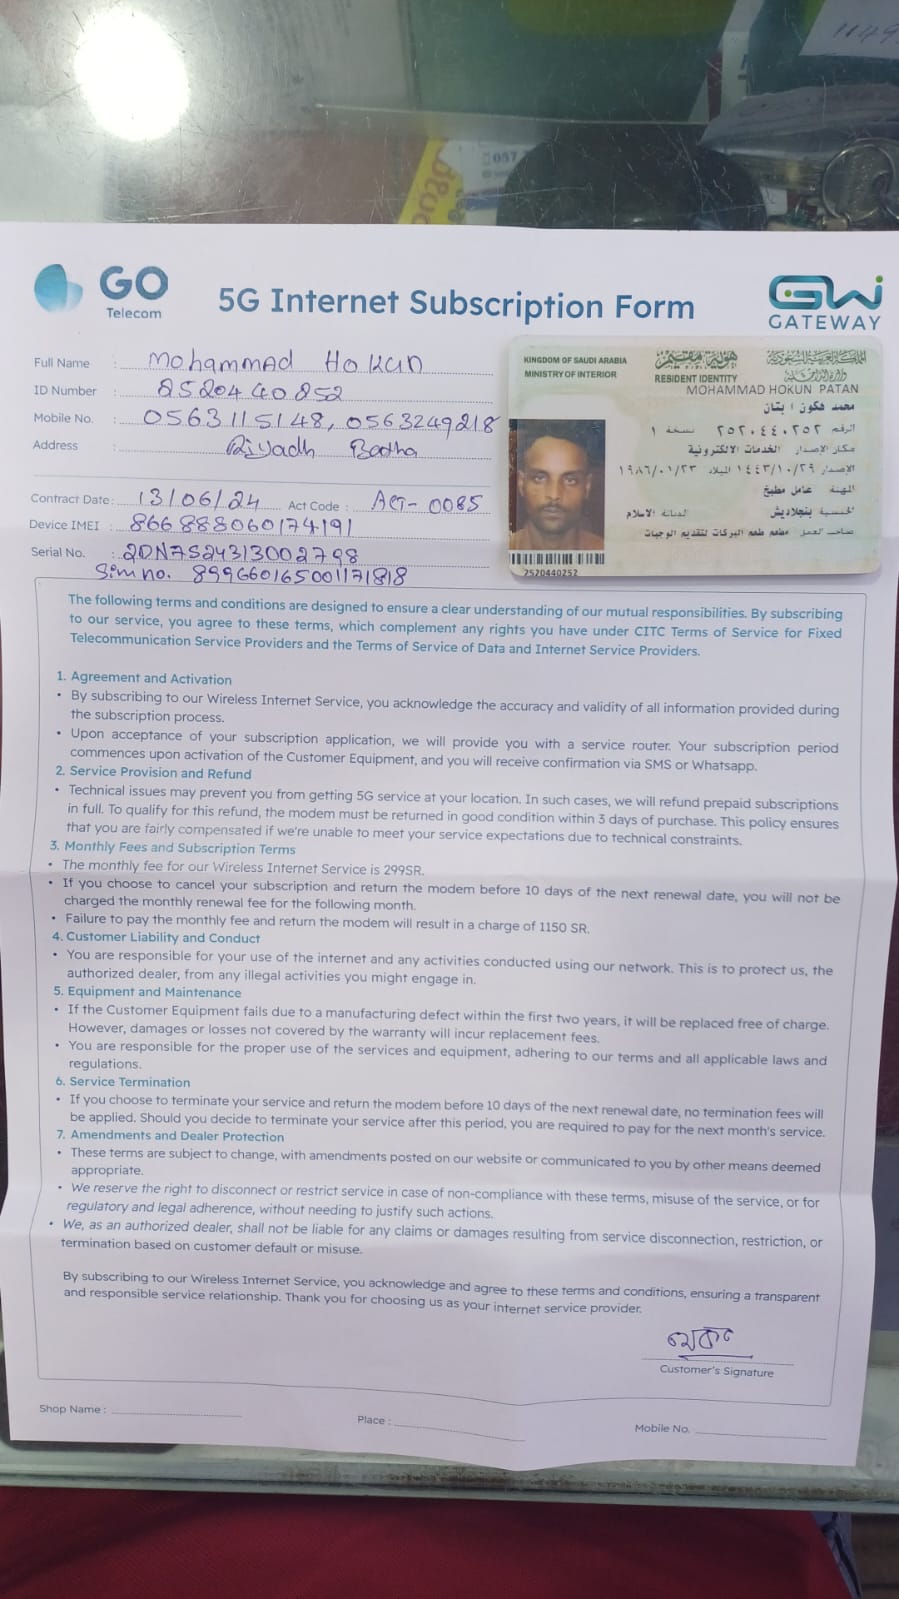 1149
057
GO
Telecom
5G Internet Subscription Form
GW
GATEWAY
Full Name : Mohammad Hokun
ID Number : 2520440252
Mobile No. : 0563115148, 0563249218
Address : Riyadh Batha
Contract Date: 13/06/24 Act Code : Act- 0085
Device IMEI : 866888060174191
Serial No. : 2DN7S24313002798
Sim no. 899660165001171818
KINGDOM OF SAUDI ARABIA
MINISTRY OF INTERIOR
هوية مقيم
RESIDENT IDENTITY
المملكة العربية السعودية
وزارة الداخلية
MOHAMMAD HOKUN PATAN
محمد هكون ا بتان
الرقم ٢٥٢٠٤٤٠٢٥٢ نسخة ١
مكان الإصدار الخدمات الالكترونية
الإصدار ١٤٤٣/١٠/٢٩ الميلاد ١٩٨٦/٠١/٢٣
المهنة عامل مطبخ
الجنسية بنجلاديش الديانة الاسلام
صاحب العمل مطعم طعم البركات لتقديم الوجبات
2520440252
The following terms and conditions are designed to ensure a clear understanding of our mutual responsibilities. By subscribing
to our service, you agree to these terms, which complement any rights you have under CITC Terms of Service for Fixed
Telecommunication Service Providers and the Terms of Service of Data and Internet Service Providers.
1. Agreement and Activation
• By subscribing to our Wireless Internet Service, you acknowledge the accuracy and validity of all information provided during
the subscription process.
• Upon acceptance of your subscription application, we will provide you with a service router. Your subscription period
commences upon activation of the Customer Equipment, and you will receive confirmation via SMS or Whatsapp.
2. Service Provision and Refund
• Technical issues may prevent you from getting 5G service at your location. In such cases, we will refund prepaid subscriptions
in full. To qualify for this refund, the modem must be returned in good condition within 3 days of purchase. This policy ensures
that you are fairly compensated if we're unable to meet your service expectations due to technical constraints.
3. Monthly Fees and Subscription Terms
• The monthly fee for our Wireless Internet Service is 299SR.
• If you choose to cancel your subscription and return the modem before 10 days of the next renewal date, you will not be
charged the monthly renewal fee for the following month.
• Failure to pay the monthly fee and return the modem will result in a charge of 1150 SR.
4. Customer Liability and Conduct
• You are responsible for your use of the internet and any activities conducted using our network. This is to protect us, the
authorized dealer, from any illegal activities you might engage in.
5. Equipment and Maintenance
• If the Customer Equipment fails due to a manufacturing defect within the first two years, it will be replaced free of charge.
However, damages or losses not covered by the warranty will incur replacement fees.
• You are responsible for the proper use of the services and equipment, adhering to our terms and all applicable laws and
regulations.
6. Service Termination
• If you choose to terminate your service and return the modem before 10 days of the next renewal date, no termination fees will
be applied. Should you decide to terminate your service after this period, you are required to pay for the next month's service.
7. Amendments and Dealer Protection
• These terms are subject to change, with amendments posted on our website or communicated to you by other means deemed
appropriate.
• We reserve the right to disconnect or restrict service in case of non-compliance with these terms, misuse of the service, or for
regulatory and legal adherence, without needing to justify such actions.
• We, as an authorized dealer, shall not be liable for any claims or damages resulting from service disconnection, restriction, or
termination based on customer default or misuse.
By subscribing to our Wireless Internet Service, you acknowledge and agree to these terms and conditions, ensuring a transparent
and responsible service relationship. Thank you for choosing us as your internet service provider.
Customer's Signature
Shop Name :
Place :
Mobile No.